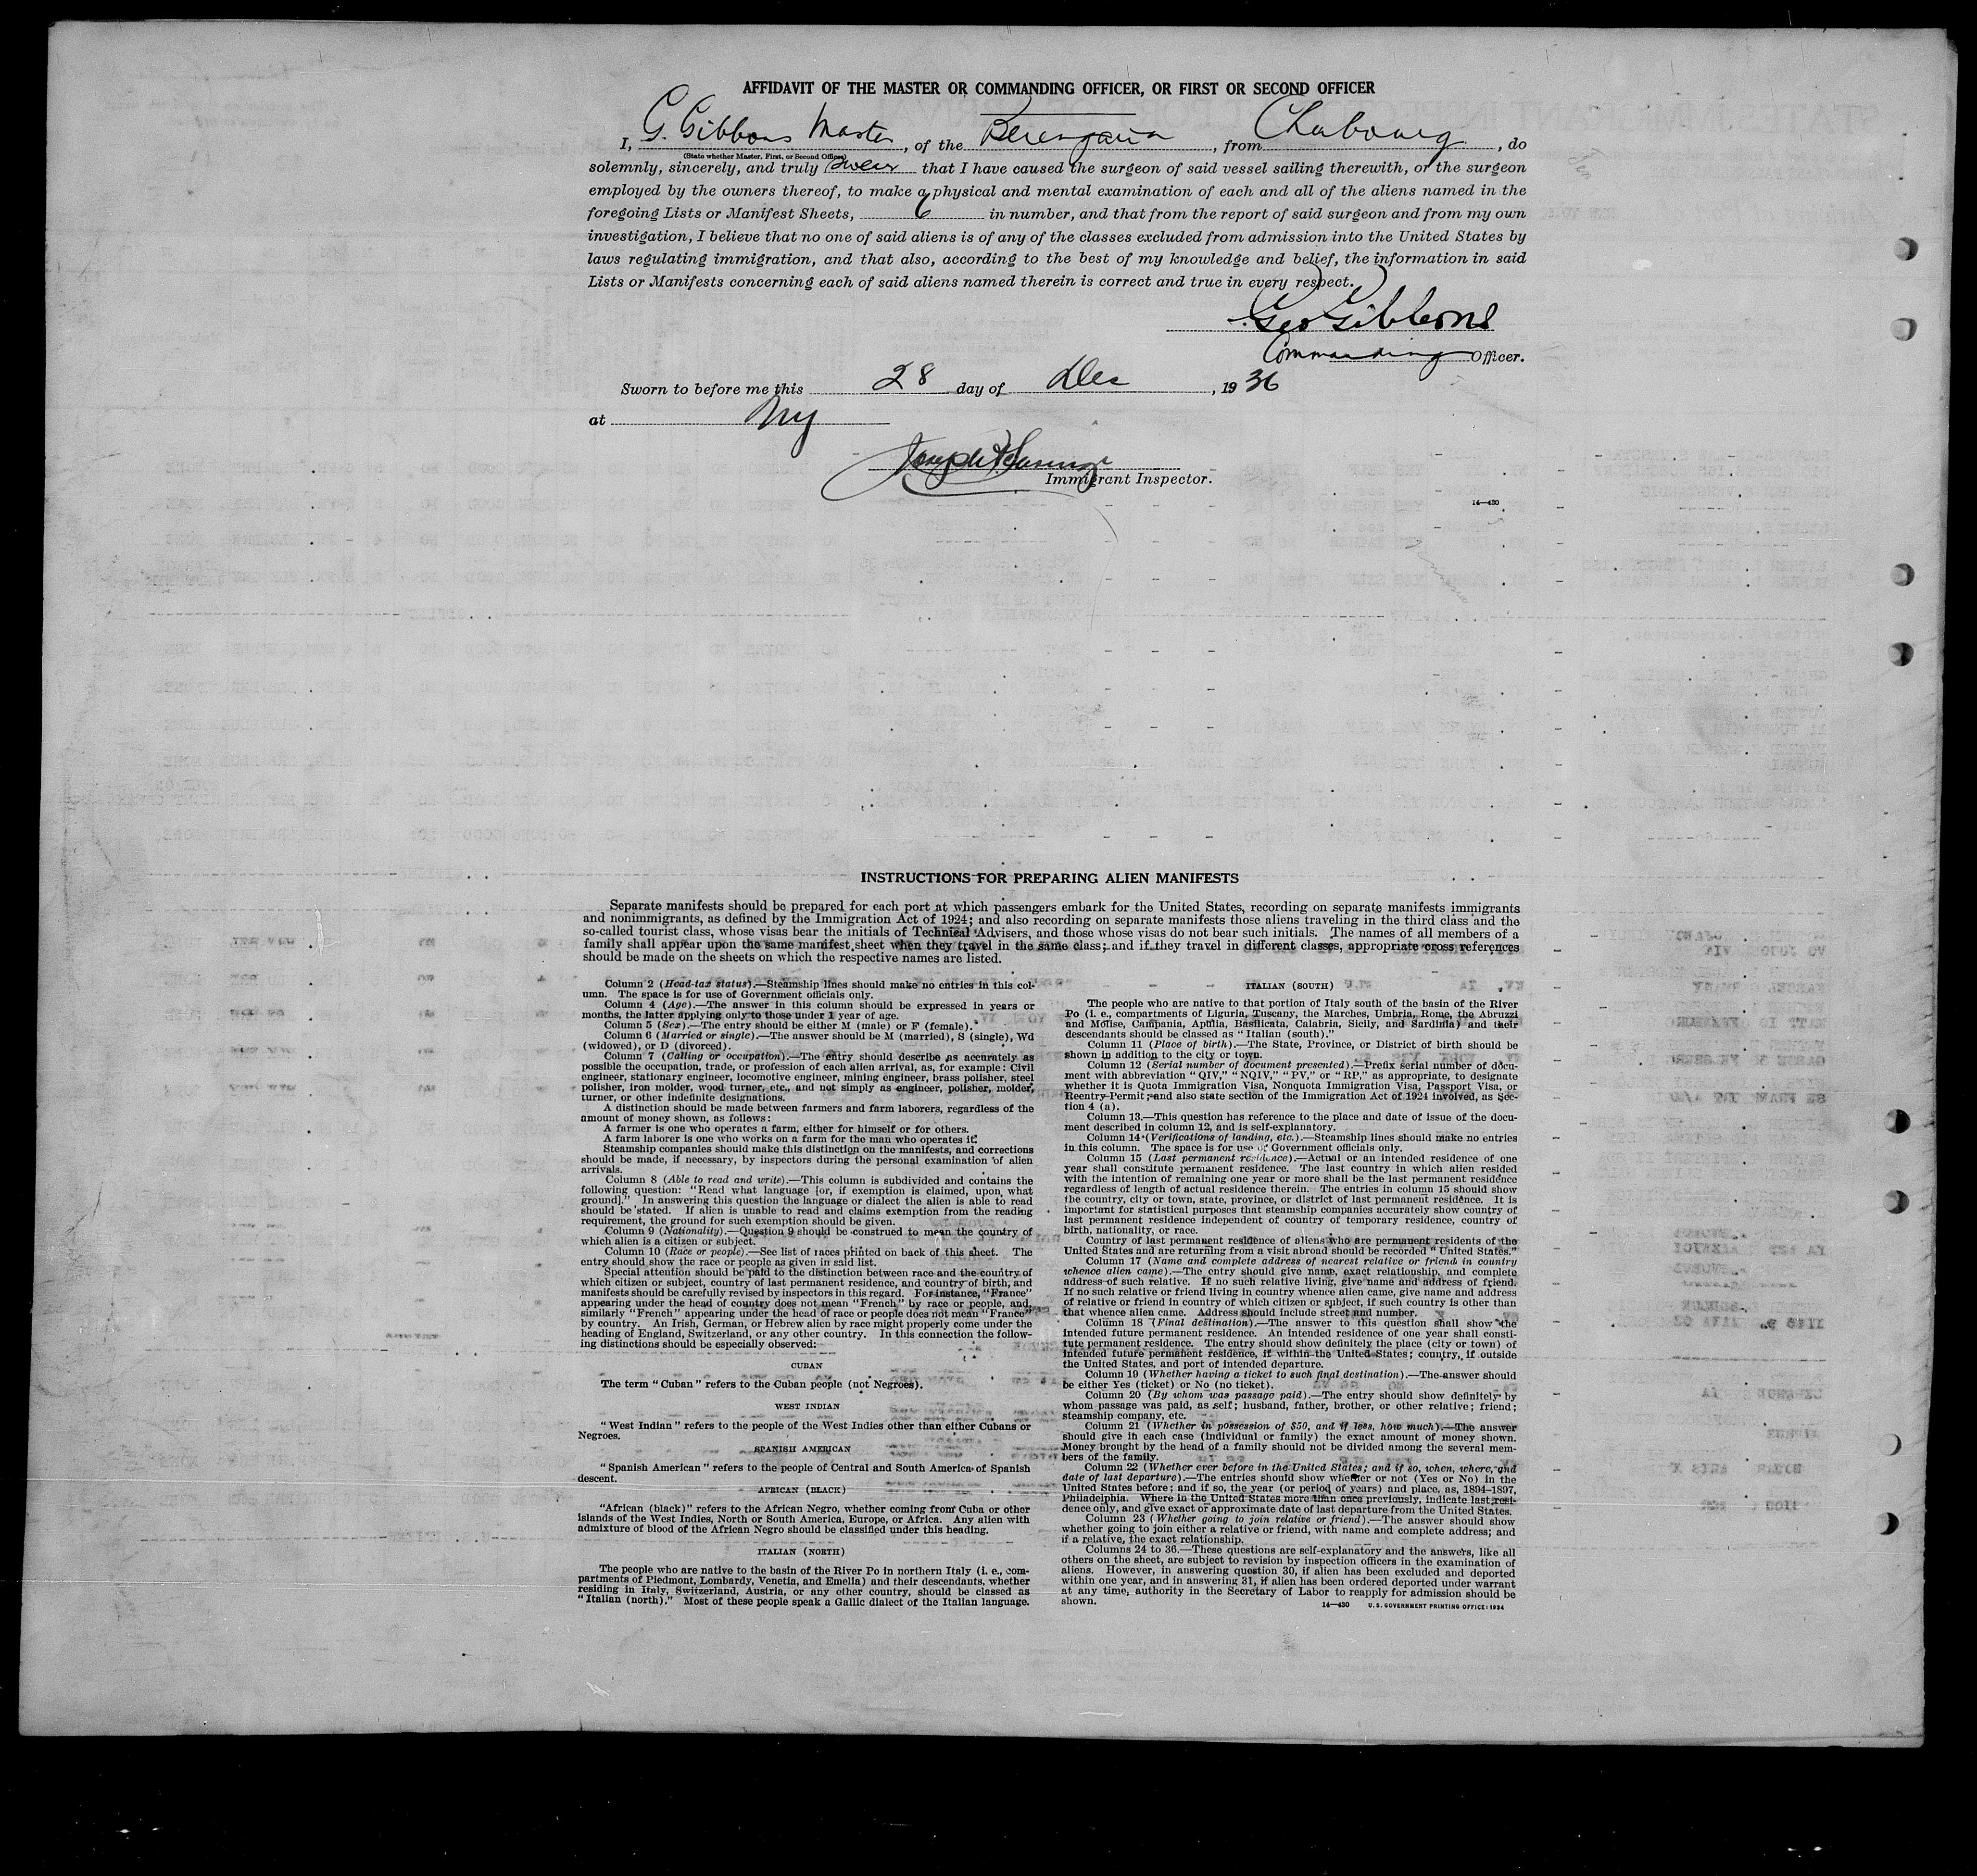 AFFIDAVIT OF THE MASTER OR COMMANDING OFFICER, OR FIRST OR SECOND OFFICER
I, G. Gibbons Master, of the Berengaria, from Cherbourg, do
(State whether Master, First, or Second Officer)
solemnly, sincerely, and truly swear that I have caused the surgeon of said vessel sailing therewith, or the surgeon
employed by the owners thereof, to make a physical and mental examination of each and all of the aliens named in the
foregoing Lists or Manifest Sheets, 6 in number, and that from the report of said surgeon and from my own
investigation, I believe that no one of said aliens is of any of the classes excluded from admission into the United States by
laws regulating immigration, and that also, according to the best of my knowledge and belief, the information in said
Lists or Manifests concerning each of said aliens named therein is correct and true in every respect.
Geo Gibbons
Commanding Officer.
Sworn to before me this 28 day of Dec, 1936
at NY
Joseph
Immigrant Inspector.
14—430
INSTRUCTIONS FOR PREPARING ALIEN MANIFESTS
Separate manifests should be prepared for each port at which passengers embark for the United States, recording on separate manifests immigrants
and nonimmigrants, as defined by the Immigration Act of 1924; and also recording on separate manifests those aliens traveling in the third class and the
so-called tourist class, whose visas bear the initials of Technical Advisers, and those whose visas do not bear such initials. The names of all members of a
family shall appear upon the same manifest sheet when they travel in the same class; and if they travel in different classes, appropriate cross references
should be made on the sheets on which the respective names are listed.
Column 2 (Head-tax status).—Steamship lines should make no entries in this col-
umn. The space is for use of Government officials only.
Column 4 (Age).—The answer in this column should be expressed in years or
months, the latter applying only to those under 1 year of age.
Column 5 (Sex).—The entry should be either M (male) or F (female).
Column 6 (Married or single).—The answer should be M (married), S (single), Wd
(widowed), or D (divorced).
Column 7 (Calling or occupation).—The entry should describe as accurately as
possible the occupation, trade, or profession of each alien arrival, as, for example: Civil
engineer, stationary engineer, locomotive engineer, mining engineer, brass polisher, steel
polisher, iron molder, wood turner, etc., and not simply as engineer, polisher, molder,
turner, or other indefinite designations.
A distinction should be made between farmers and farm laborers, regardless of the
amount of money shown, as follows:
A farmer is one who operates a farm, either for himself or for others.
A farm laborer is one who works on a farm for the man who operates it.
Steamship companies should make this distinction on the manifests, and corrections
should be made, if necessary, by inspectors during the personal examination of alien
arrivals.
Column 8 (Able to read and write).—This column is subdivided and contains the
following question: "Read what language [or, if exemption is claimed, upon what
ground]." In answering this question the language or dialect the alien is able to read
should be stated. If alien is unable to read and claims exemption from the reading
requirement, the ground for such exemption should be given.
Column 9 (Nationality).—Question 9 should be construed to mean the country of
which alien is a citizen or subject.
Column 10 (Race or people).—See list of races printed on back of this sheet. The
entry should show the race or people as given in said list.
Special attention should be paid to the distinction between race and the country of
which citizen or subject, country of last permanent residence, and country of birth, and
manifests should be carefully revised by inspectors in this regard. For instance, "France"
appearing under the head of country does not mean "French" by race or people, and,
similarly "French" appearing under the head of race or people does not mean "France"
by country. An Irish, German, or Hebrew alien by race might properly come under the
heading of England, Switzerland, or any other country. In this connection the follow-
ing distinctions should be especially observed:
CUBAN
The term "Cuban" refers to the Cuban people (not Negroes).
WEST INDIAN
"West Indian" refers to the people of the West Indies other than either Cubans or
Negroes.
SPANISH AMERICAN
"Spanish American" refers to the people of Central and South America of Spanish
descent.
AFRICAN (BLACK)
"African (black)" refers to the African Negro, whether coming from Cuba or other
islands of the West Indies, North or South America, Europe, or Africa. Any alien with
admixture of blood of the African Negro should be classified under this heading.
ITALIAN (NORTH)
The people who are native to the basin of the River Po in northern Italy (i. e., com-
partments of Piedmont, Lombardy, Venetia, and Emelia) and their descendants, whether
residing in Italy, Switzerland, Austria, or any other country, should be classed as
"Italian (north)." Most of these people speak a Gallic dialect of the Italian language.
ITALIAN (SOUTH)
The people who are native to that portion of Italy south of the basin of the River
Po (i. e., compartments of Liguria, Tuscany, the Marches, Umbria, Rome, the Abruzzi
and Molise, Campania, Apulia, Basilicata, Calabria, Sicily, and Sardinia) and their
descendants should be classed as "Italian (south)."
Column 11 (Place of birth).—The State, Province, or District of birth should be
shown in addition to the city or town.
Column 12 (Serial number of document presented).—Prefix serial number of docu-
ment with abbreviation "QIV," "NQIV," "PV," or "RP," as appropriate, to designate
whether it is Quota Immigration Visa, Nonquota Immigration Visa, Passport Visa, or
Reentry Permit; and also state section of the Immigration Act of 1924 involved, as Sec-
tion 4 (a).
Column 13.—This question has reference to the place and date of issue of the docu-
ment described in column 12, and is self-explanatory.
Column 14 (Verifications of landing, etc.).—Steamship lines should make no entries
in this column. The space is for use of Government officials only.
Column 15 (Last permanent residence).—Actual or an intended residence of one
year shall constitute permanent residence. The last country in which alien resided
with the intention of remaining one year or more shall be the last permanent residence
regardless of length of actual residence therein. The entries in column 15 should show
the country, city or town, state, province, or district of last permanent residence. It is
important for statistical purposes that steamship companies accurately show country of
last permanent residence independent of country of temporary residence, country of
birth, nationality, or race.
Country of last permanent residence of aliens who are permanent residents of the
United States and are returning from a visit abroad should be recorded "United States."
Column 17 (Name and complete address of nearest relative or friend in country
whence alien came).—The entry should give name, exact relationship, and complete
address of such relative. If no such relative living, give name and address of friend.
If no such relative or friend living in country whence alien came, give name and address
of relative or friend in country of which citizen or subject, if such country is other than
that whence alien came. Address should include street and number.
Column 18 (Final destination).—The answer to this question shall show the
intended future permanent residence. An intended residence of one year shall consti-
tute permanent residence. The entry should show definitely the place (city or town) of
intended future permanent residence, if within the United States; country, if outside
the United States, and port of intended departure.
Column 19 (Whether having a ticket to such final destination).—The answer should
be either Yes (ticket) or No (no ticket).
Column 20 (By whom was passage paid).—The entry should show definitely by
whom passage was paid, as self; husband, father, brother, or other relative; friend;
steamship company, etc.
Column 21 (Whether in possession of $50, and if less, how much).—The answer
should give in each case (individual or family) the exact amount of money shown.
Money brought by the head of a family should not be divided among the several mem-
bers of the family.
Column 22 (Whether ever before in the United States; and if so, when, where, and
date of last departure).—The entries should show whether or not (Yes or No) in the
United States before; and if so, the year (or period of years) and place, as, 1894–1897,
Philadelphia. Where in the United States more than once previously, indicate last resi-
dence only, and give exact or approximate date of last departure from the United States.
Column 23 (Whether going to join relative or friend).—The answer should show
whether going to join either a relative or friend, with name and complete address; and
if a relative, the exact relationship.
Columns 24 to 36.—These questions are self-explanatory and the answers, like all
others on the sheet, are subject to revision by inspection officers in the examination of
aliens. However, in answering question 30, if alien has been excluded and deported
within one year, and in answering 31, if alien has been ordered deported under warrant
at any time, authority in the Secretary of Labor to reapply for admission should be
shown.
14—430 U. S. GOVERNMENT PRINTING OFFICE: 1934